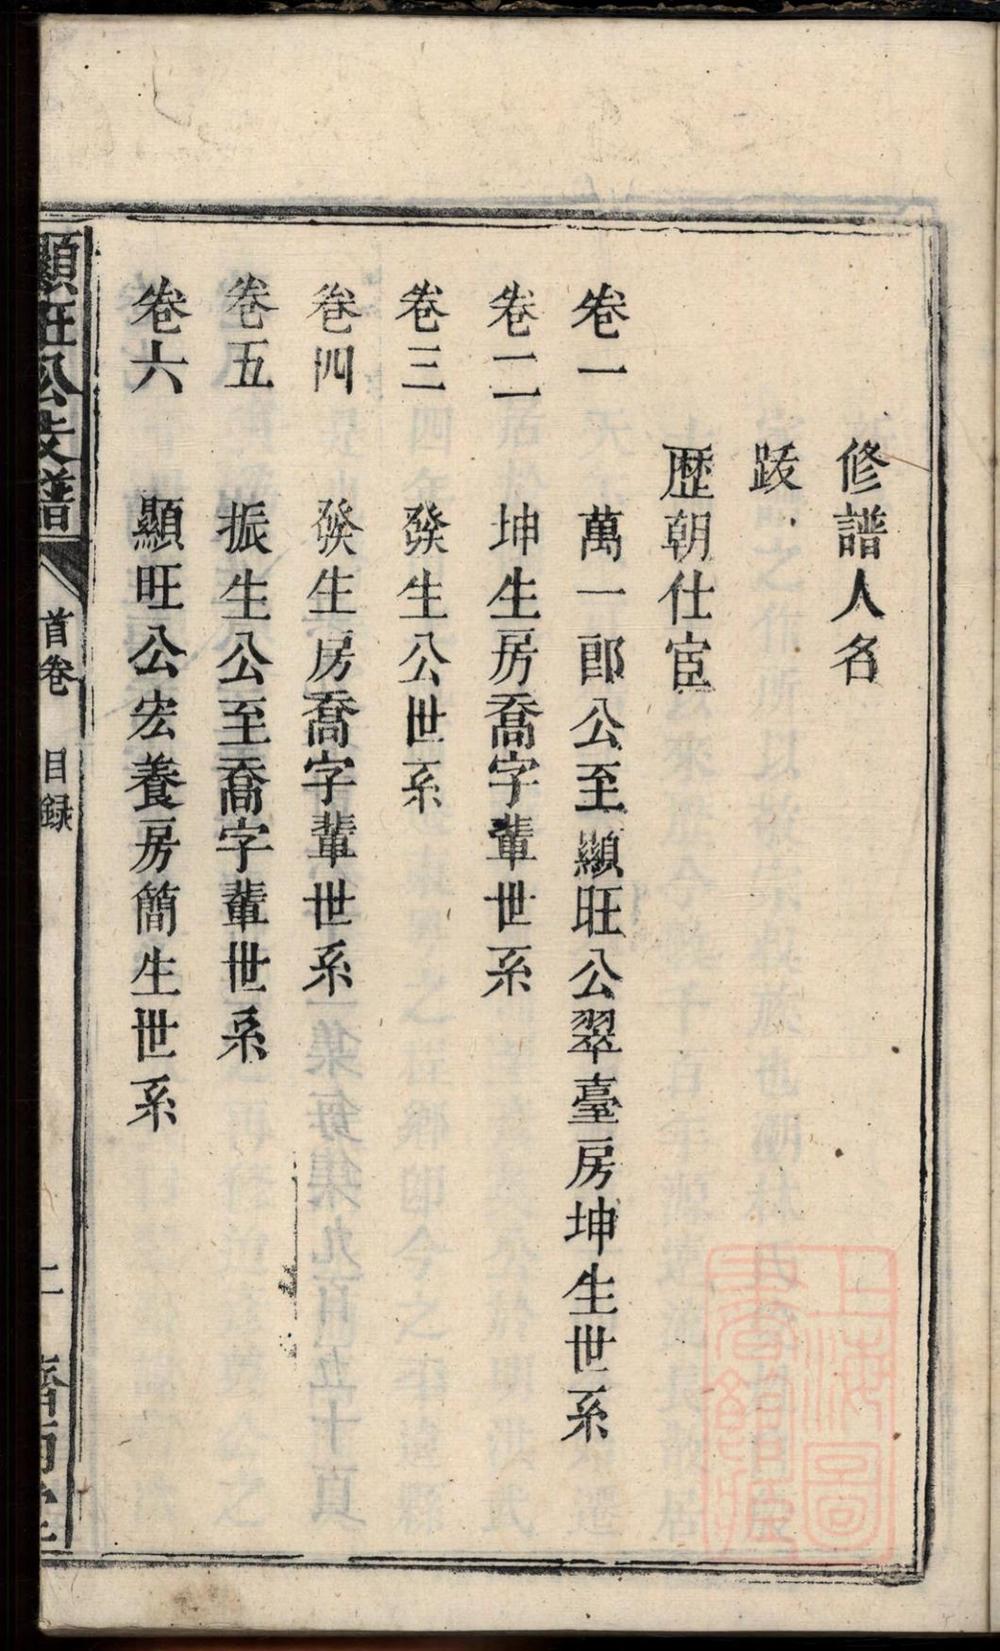 修譜人名
跋
歷朝仕宦
卷一　萬一郎公至顯旺公翠臺房坤生世系
卷二　坤生房喬字輩世系
卷三　發生公世系
卷四　發生房喬字輩世系
卷五　振生公至喬字輩世系
卷六　顯旺公宏養房簡生世系
顯旺公支譜　首卷　目録　二　濟南堂
上海圖書館藏